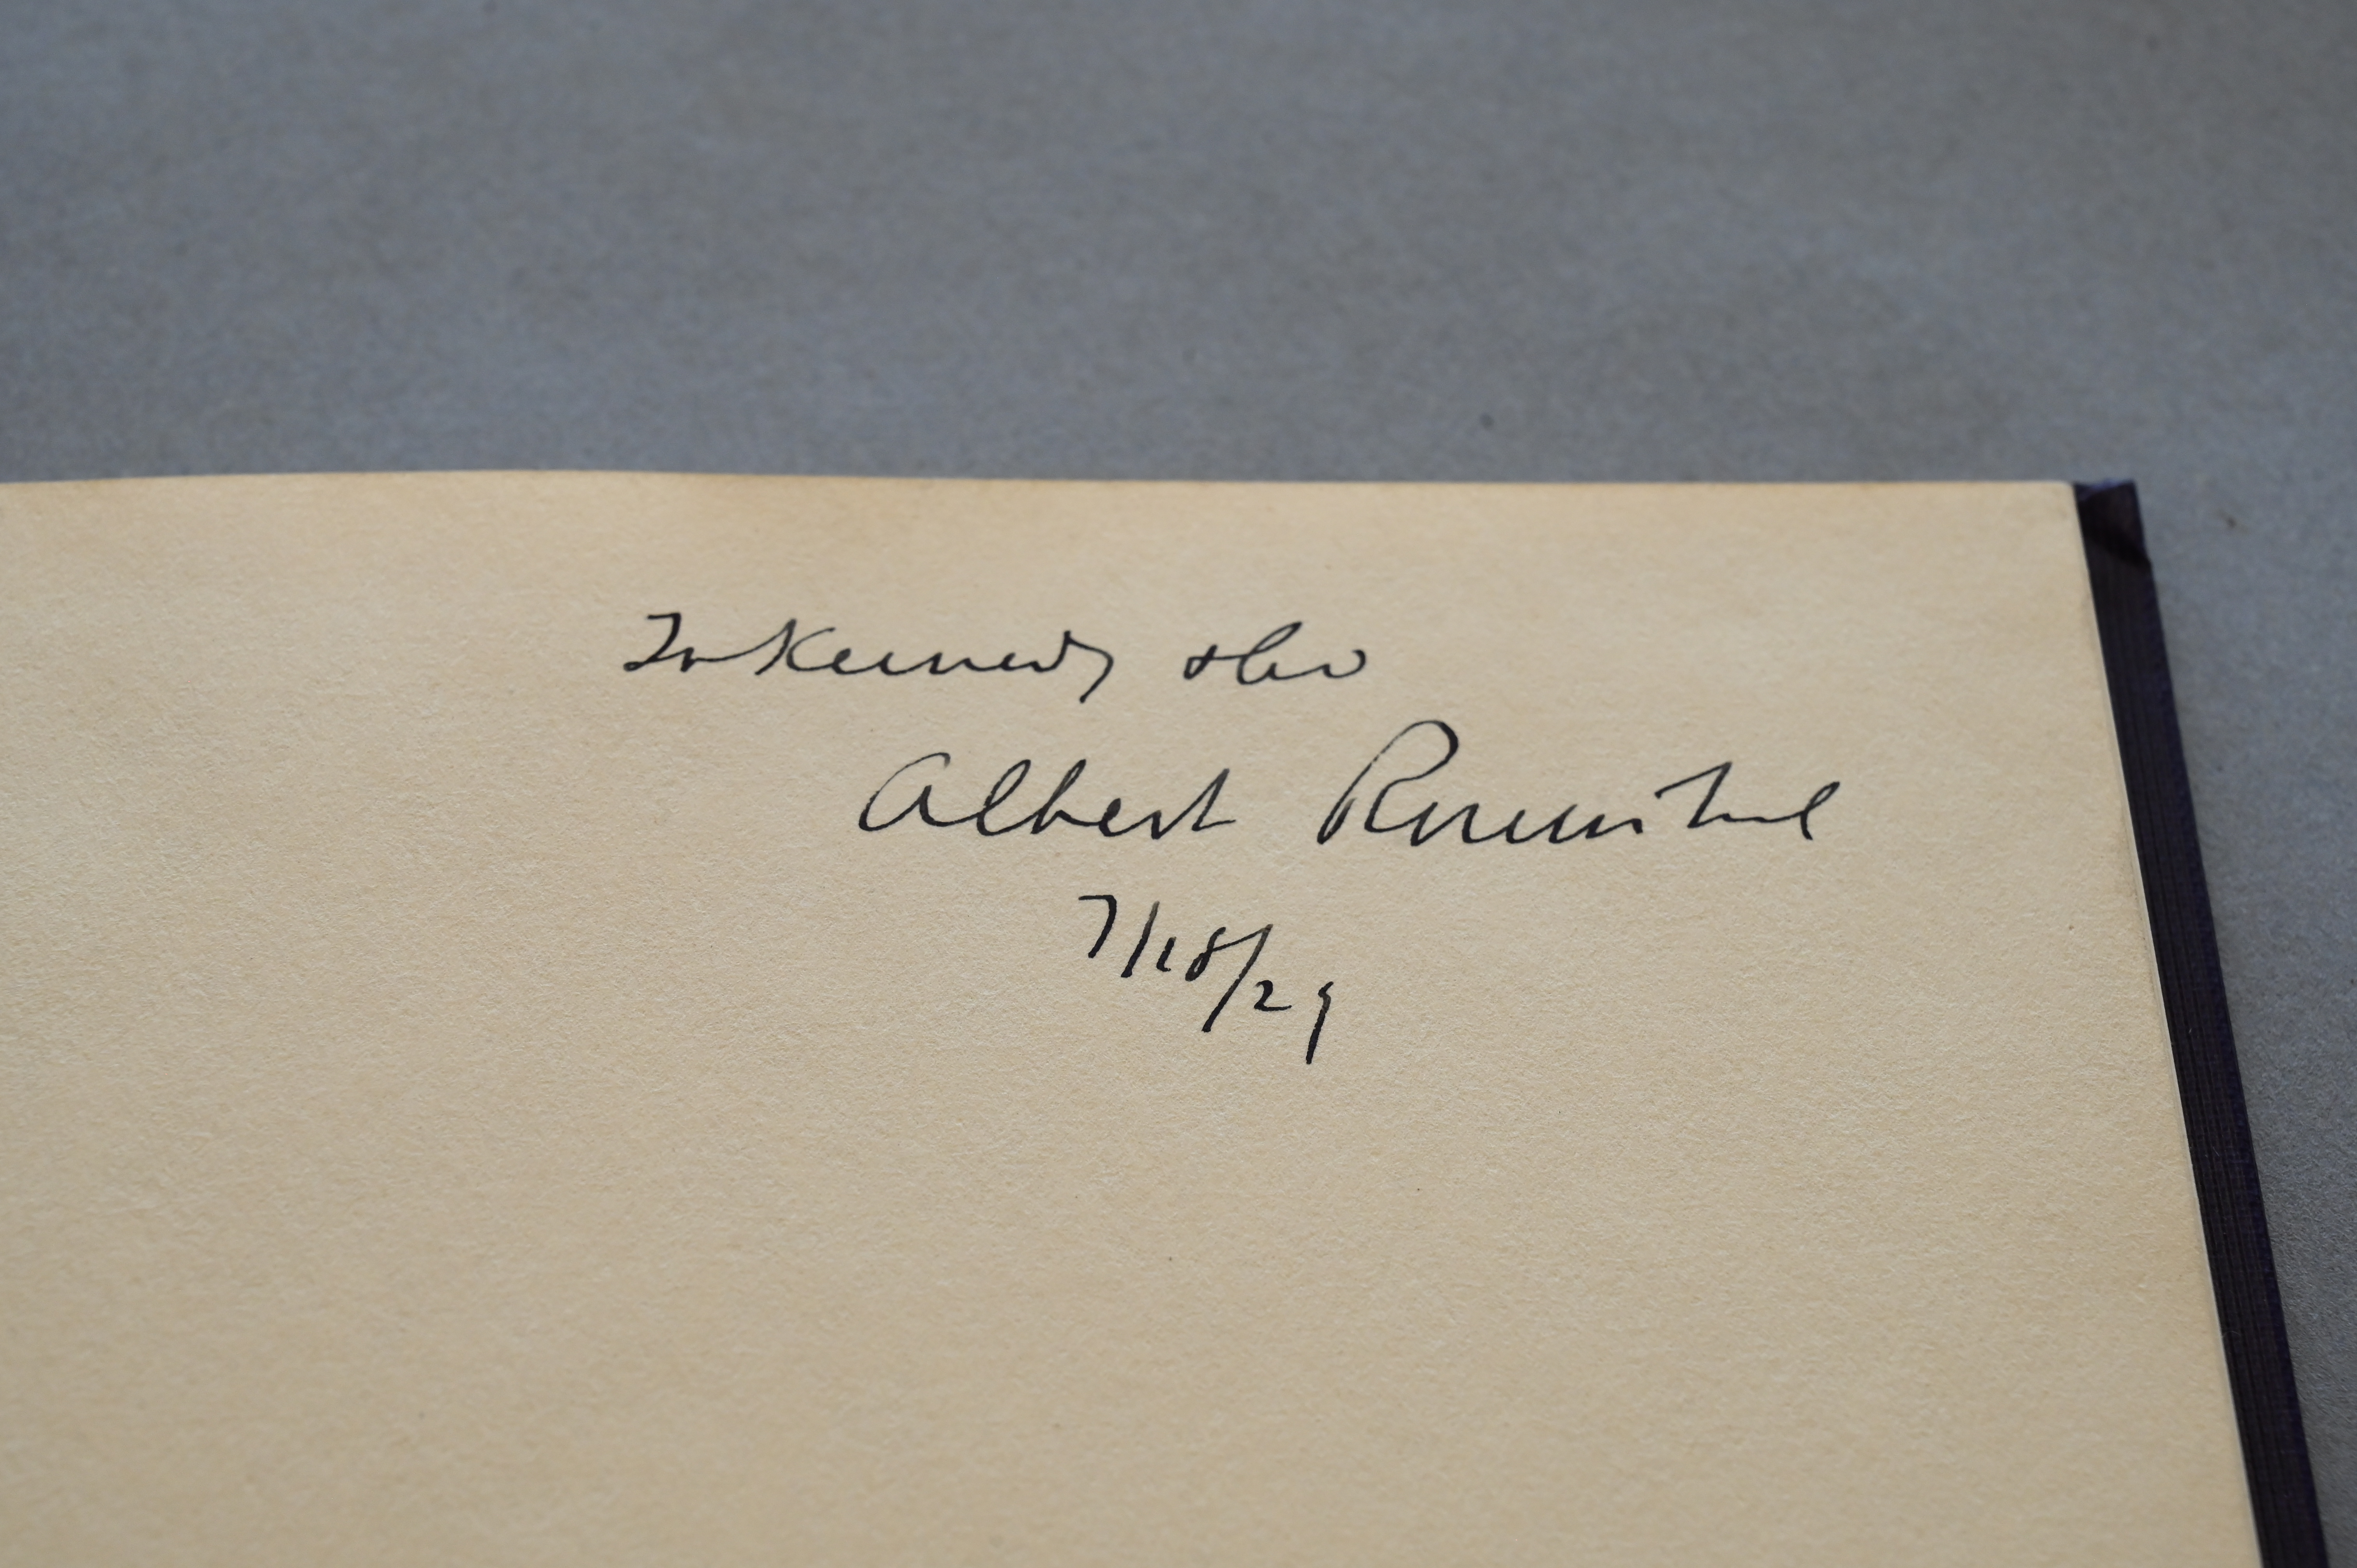 To Kennedy & Co
Albert Rosenthal
7/18/29